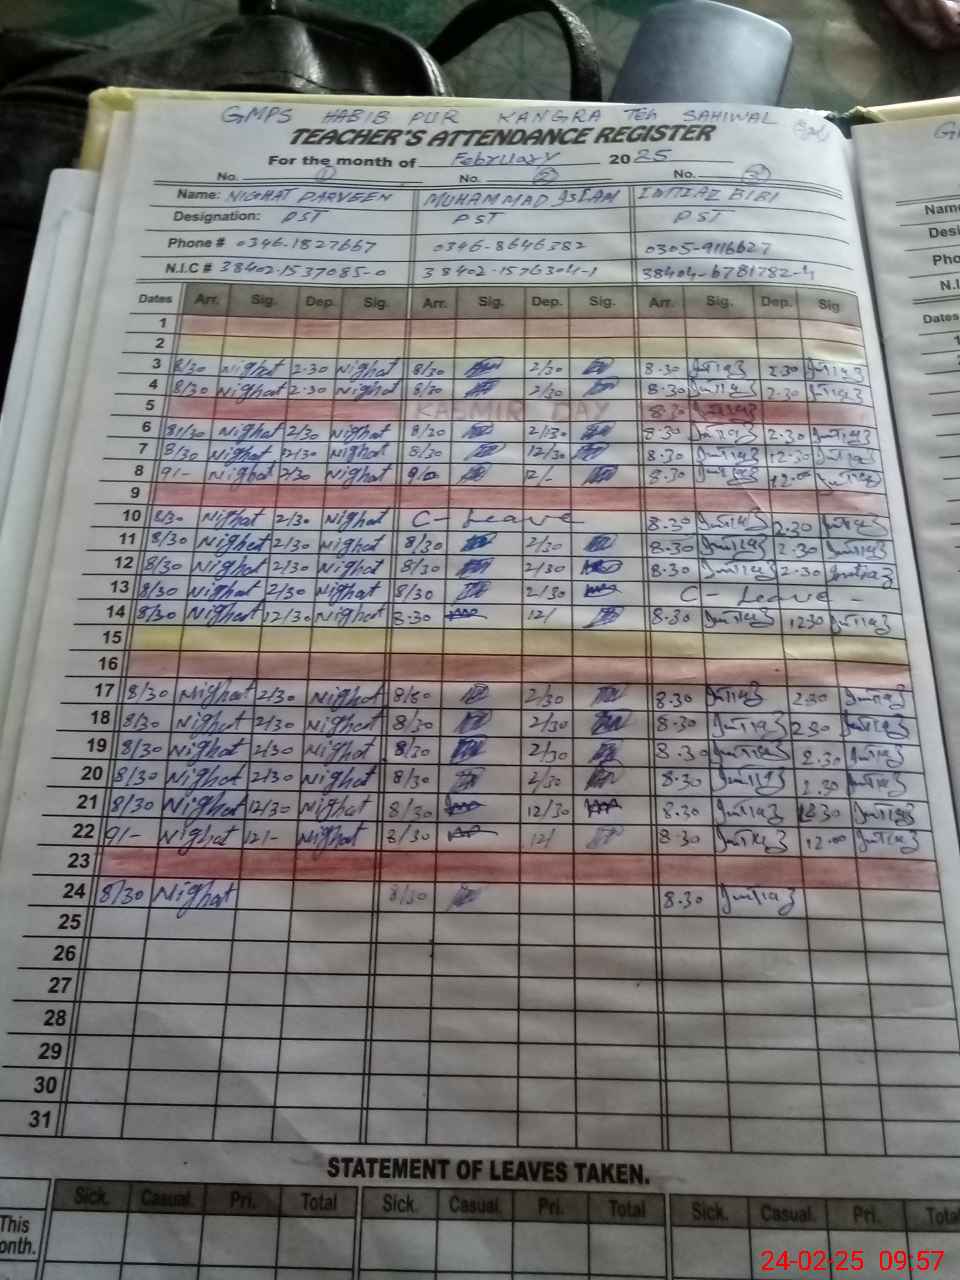 GMPS HABIB PUR KANGRA Teh SAHIWAL
TEACHER'S ATTENDANCE REGISTER
For the month of February 2025
No. 1 No. 2 No. 3
Name: NIGHAT PARVEEN MUHAMMAD ASLAM IMTIAZ BIBI
Designation: PST PST PST
Phone # 0346-1827667 0346-8646382 0305-9116627
N.I.C # 38402-1537085-0 38402-1576304-1 38404-6781782-4
Dates Arr. Sig. Dep. Sig. Arr. Sig. Dep. Sig. Arr. Sig. Dep. Sig
1
2
3 8/30 Nighat 2-30 Nighat 8/30 2/30 8.30 Imtiaz 2.30 Imtiaz
4 8/30 Nighat 2-30 Nighat 8/30 2/30 8.30 Imtiaz 2.30 Imtiaz
5 KASMIR DAY 8.30 Imtiaz
6 8/30 Nighat 2/30 Nighat 8/30 2/30 8.30 Imtiaz 2.30 Imtiaz
7 8/30 Nighat 12/30 Nighat 8/30 12/30 8.30 Imtiaz 12.30 Imtiaz
8 9/- Nighat Nighat 12/- 8.30 Imtiaz 12.00 Imtiaz
9
10 8/30 Nighat 2/30 Nighat C- Leave 8.30 Imtiaz 2.30 Imtiaz
11 8/30 Nighat 2/30 Nighat 8/30 2/30 8.30 Imtiaz 2.30 Imtiaz
12 8/30 Nighat 2/30 Nighat 8/30 2/30 8.30 Imtiaz 2.30 Imtiaz
13 8/30 Nighat 2/30 Nighat 8/30 2/30 C- Leave -
14 8/30 Nighat 12/30 Nighat 8-30 12/ 8.30 Imtiaz 12.30 Imtiaz
15
16
17 8/30 Nighat 2/30 Nighat 2/30 8.30 Imtiaz 2.30 Imtiaz
18 8/30 Nighat 2/30 Nighat 8/30 2/30 8.30 Imtiaz 2.30 Imtiaz
19 8/30 Nighat 2/30 Nighat 8/30 2/30 8.30 Imtiaz 2.30 Imtiaz
20 8/30 Nighat 2/30 Nighat 8/30 2/30 8.30 Imtiaz 2.30 Imtiaz
21 8/30 Nighat 12/30 Nighat 8/30 12/30 8.30 Imtiaz 12.30 Imtiaz
22 9/- Nighat 12/- Nighat 8/30 12/ 8.30 Imtiaz 12.00 Imtiaz
23
24 8/30 Nighat 8/30 8.30 Imtiaz
25
26
27
28
29
30
31
STATEMENT OF LEAVES TAKEN.
Sick. Casual. Pri. Total Sick. Casual. Pri. Total Sick. Casual. Pri. Total
This
onth.
Name
Desi
Pho
N.I.
Dates
24-02-25 09:57